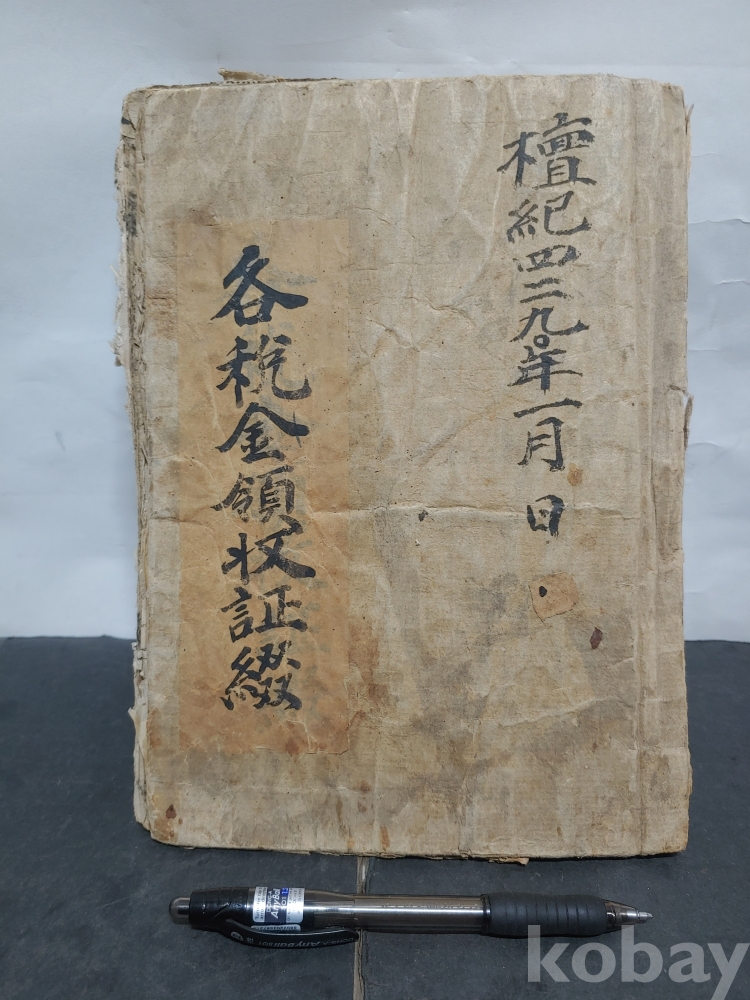 檀紀四二九〇年一月 日
各稅金領収証綴
AnyBall
kobay